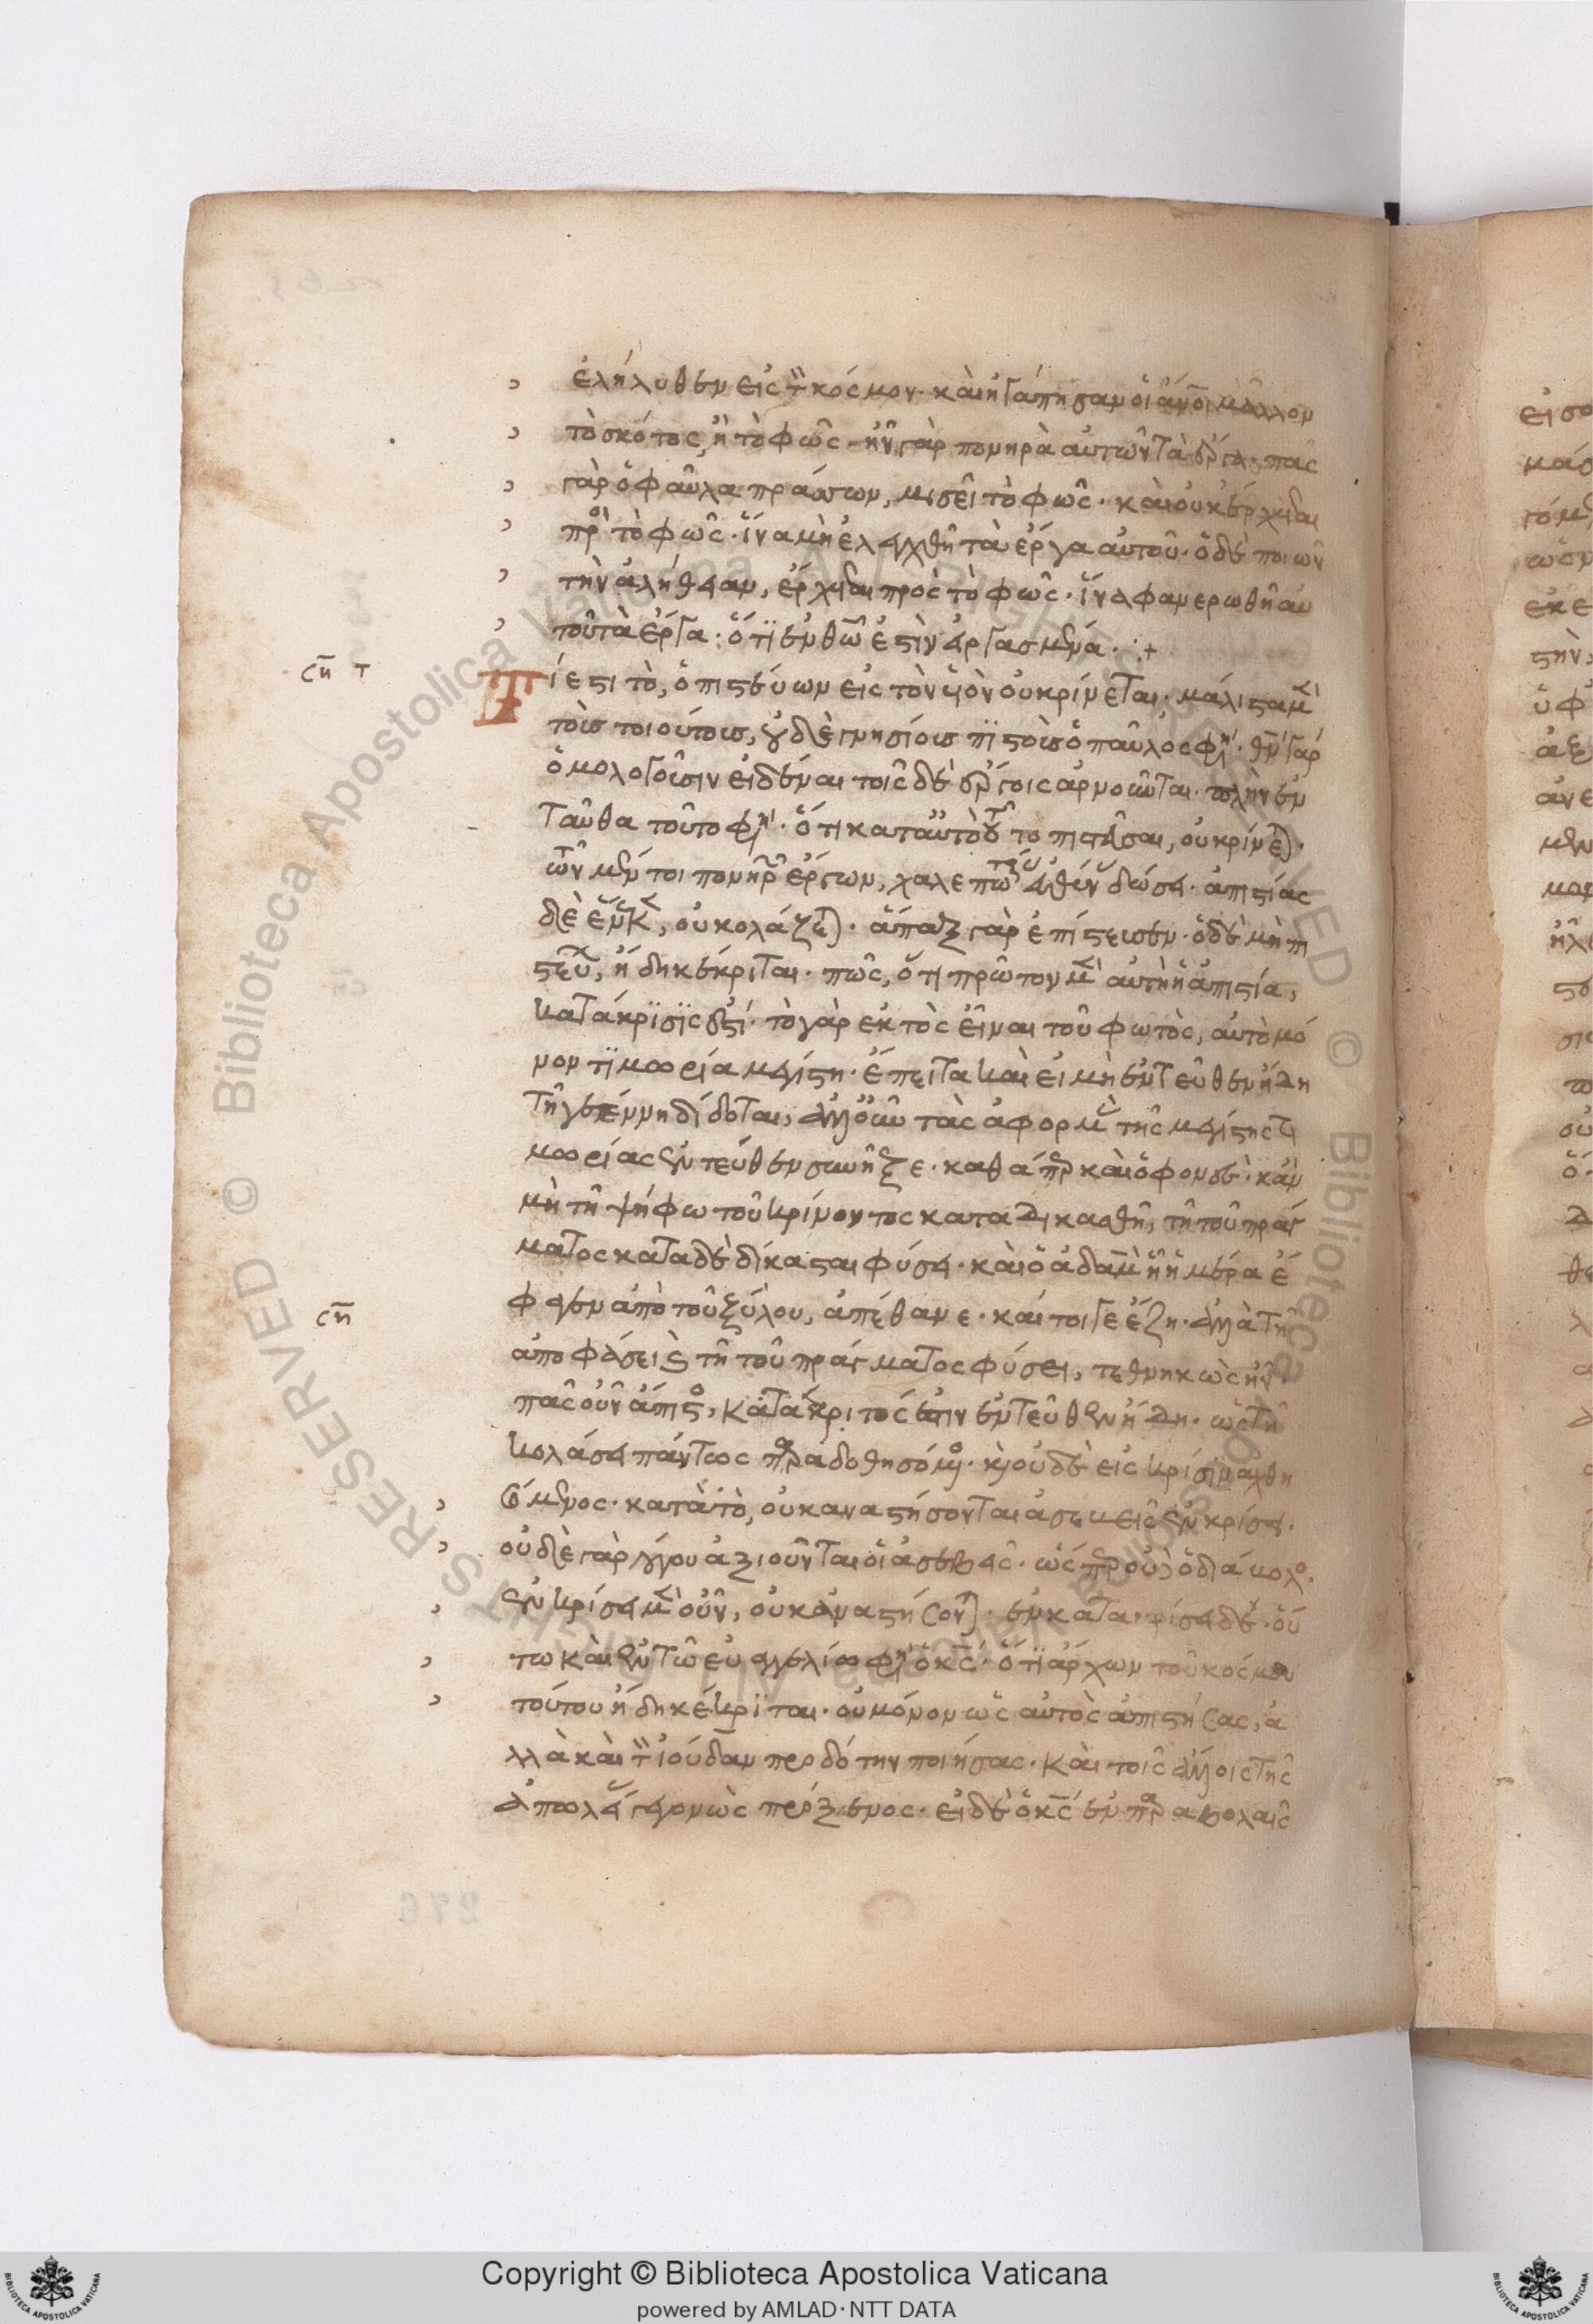 ἐλήλυθεν εἰς τ κόσμον· καὶ ἠγάπησαν οἱ ἄνοι μᾶλλον
τὸ σκότος, ἢ τὸ φῶς· ἦν γὰρ πονηρὰ αὐτῶν τὰ ἔργα· πᾶς
γὰρ ὁ φαῦλα πράσσων, μισεῖ τὸ φῶς· καὶ οὐκ ἔρχεται
πρὸς τὸ φῶς· ἵνα μὴ ἐλεγχθῆ τὰ ἔργα αὐτοῦ· ὁ δὲ ποιῶν
τὴν ἀλήθειαν, ἔρχεται πρὸς τὸ φῶς· ἵνα φανερωθῆ αυ
τοῦ τὰ ἔργα· ὅτι ἐν θω ἐστὶν εἰργασμένα· :+
ση τ
Τί ἐστι τὸ, ὁ πιστεύων εἰς τὸν υἱὸν οὐ κρίνεται· μάλιστα μὲν
τοῖς τοιούτοις, οὐδὲ γνησίοις πιστοῖς ὁ παῦλος φη· θν γάρ
ὁμολογοῦσιν εἰδέναι· τοῖς δὲ ἔργοις ἀρνοῦνται· πλὴν ἐν
ταῦθα τοῦτο φη· ὅτι κατ αὐτὸ τοῦτο τὸ πιστεῦσαι, οὐ κρίνεται·
τῶν μέντοι πονηρ ἔργων, χαλεπωτέραν εὐθύνην δώσει· ἀπιστίας
δὲ ἕνεκεν, οὐ κολάζεται· ἅπαξ γὰρ ἐπίστευσεν· ὁ δὲ μὴ πι
στεύων, ἤδη κέκριται· πῶς, ὅτι πρῶτον μὲν αὐτὴ ἡ ἀπιστία,
κατάκρισίς ἐστι· τὸ γὰρ ἐκτὸς εἶναι τοῦ φωτὸς, αὐτὸ μό
νον τιμωρία μεγίστη· ἔπειτα καὶ εἰ μὴ ἐντεῦθεν ἤδη
τῆ γεέννη δίδοται, ἀλλ οὖν τὰς ἀφορμὰς τῆς μεγίστης τι
μωρίας ἐντεύθεν συνῆξε· καθάπερ καὶ ὁ φονεὺς· κἂν
μὴ τῆ ψήφω τοῦ κρίνοντος καταδικασθῆ, τῆ τοῦ πράγ
ματος καταδεδίκασται φύσει· καὶ ὁ ἀδαμ ἧ ἡμέρα ἔ
ση
φαγεν ἀπὸ τοῦ ξύλου, ἀπέθανε· καίτοιγε ἔζη· ἀλλὰ τῆ
ἀποφάσει καὶ τῆ τοῦ πράγματος φύσει, τεθνηκὼς ἦν·
πᾶς οὖν ἄπιστος, κατάκριτός ἐστιν ἐντεῦθεν ἤδη· ὡς τῆ
κολάσει πάντως παραδοθησόμενος· καὶ οὐδὲ εἰς κρίσιν ἀχθη
σόμενος· κατὰ τὸ, οὐκ αναστήσονται ἀσεβεῖς ἐν κρίσει·
οὐδὲ γὰρ λόγου ἀξιοῦνται οἱ ἀσεβεῖς· ὥσπερ οὐδ ὁ διάβολος·
ἐν κρίσει μὲν οὖν, οὐκ ἀναστήσονται· ἐν κατακρίσει δέ· οὕ
τω καὶ ἐν τῶ εὐαγγελίω φη ὁ κς· ὅτι ἄρχων τοῦ κόσμου
τούτου ἤδη κέκριται· οὐ μόνον ὡς αὐτὸς ἀπιστήσας, ἀ
λλὰ καὶ τ ἰούδαν προδότην ποιήσας· καὶ τοῖς ἄλλοις τῆς
ἀπωλείας γεγονὼς πρόξενος· εἰ δὲ ὁ κς ἐν παραβολαῖς